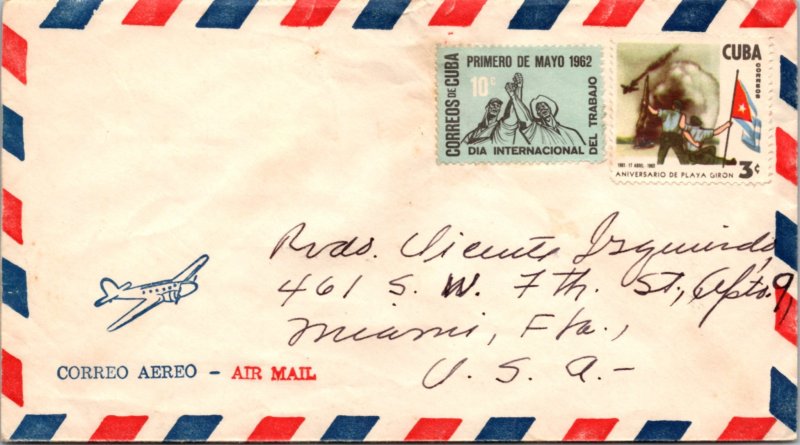 CORREOS DE CUBA
PRIMERO DE MAYO 1962
10¢
DIA INTERNACIONAL
DEL TRABAJO
CUBA
1961 - 17 ABRIL - 1962
ANIVERSARIO DE PLAYA GIRON
3¢
Rvdo. Vicente Izquierdo,
461 S. W. 7th. St., Apto. 9,
Miami, Fla.,
U. S. A.-
CORREO AEREO - AIR MAIL